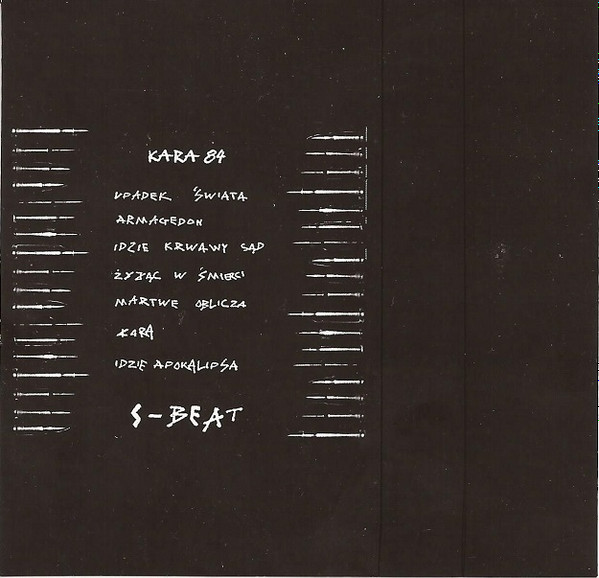 KARA 84
UPADEK ŚWIATA
ARMAGEDON
IDZIE KRWAWY SĄD
ŻYJĄC W ŚMIERCI
MARTWE OBLICZA
KARA
IDZIE APOKALIPSA
S-BEAT